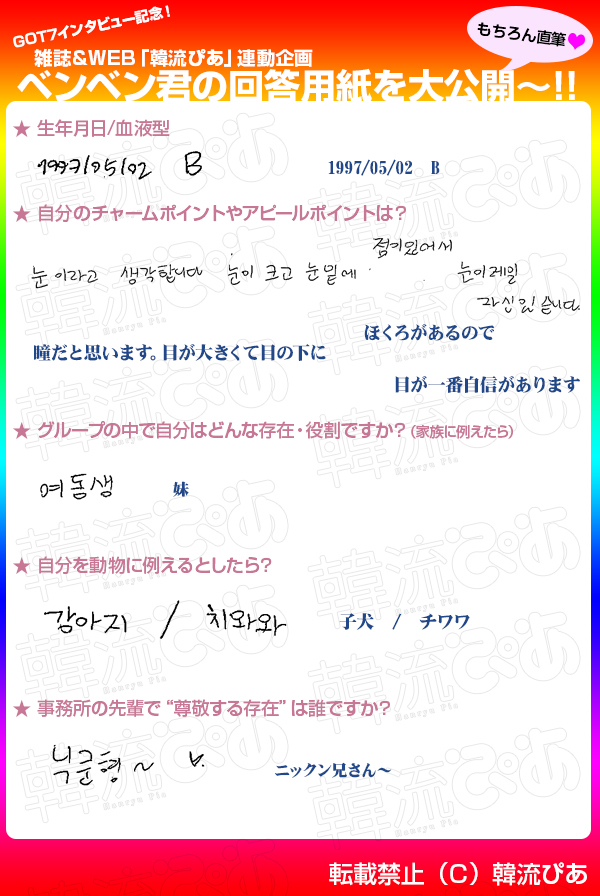 GOT7インタビュー記念！
もちろん直筆
雑誌＆WEB「韓流ぴあ」連動企画
ベンベン君の回答用紙を大公開～!!
★ 生年月日/血液型
1997/05/02 B
1997/05/02 B
★ 自分のチャームポイントやアピールポイントは？
점이있어서
눈 이라고 생각합니다 눈이 크고 눈 밑에 눈이제일
자신있습니다.
ほくろがあるので
瞳だと思います。目が大きくて目の下に
目が一番自信があります
★ グループの中で自分はどんな存在・役割ですか？（家族に例えたら）
여동생 妹
★ 自分を動物に例えるとしたら？
강아지 / 치와와 子犬 / チワワ
★ 事務所の先輩で“尊敬する存在”は誰ですか？
닉쿤형~ ニックン兄さん～
転載禁止（C）韓流ぴあ
韓流ぴあ
Hanryu Pia